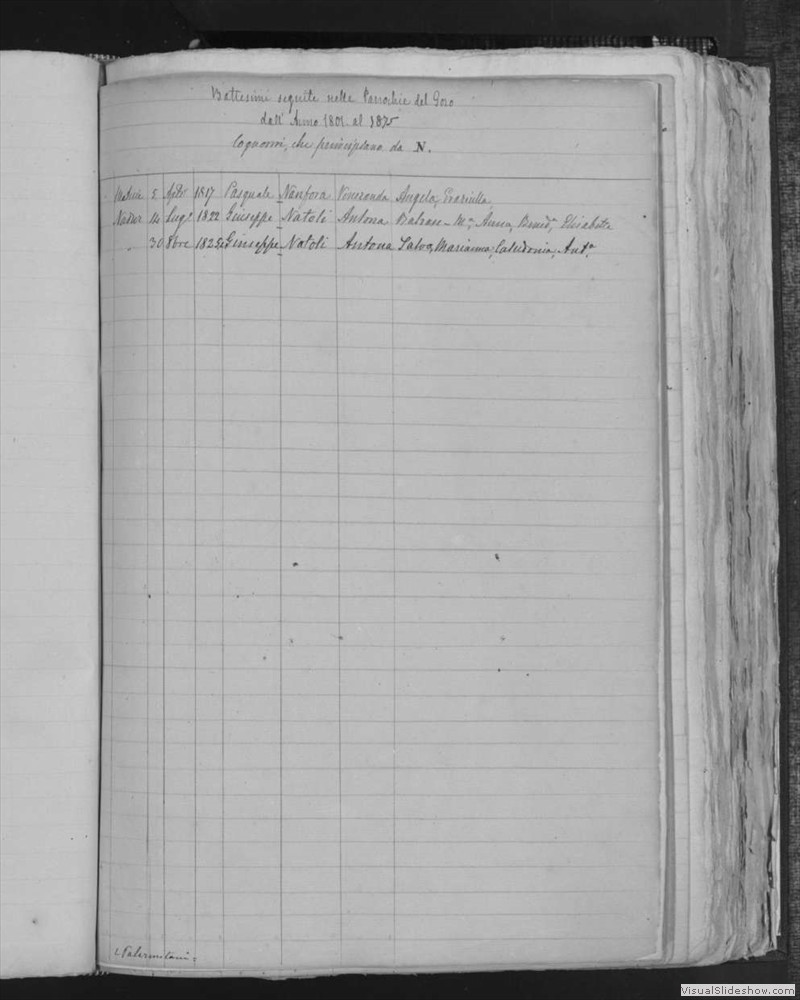 Battesimi seguite nelle Parrochie del Gozo
dall' Anno 1801 al 1875
Cognomi, che principiano da N.
Matrice 5 1817 Pasquale Nanfora Veneranda Angela,
Nadur 14 Lug.o 1822 Giuseppe Natoli Antona M.a, Anna, Elisabetta
" 30 8bre 1825 Giuseppe Natoli Antona Salva, Marianna, Calcidonia, Ant.a
Palermitani
VisualSlideshow.com